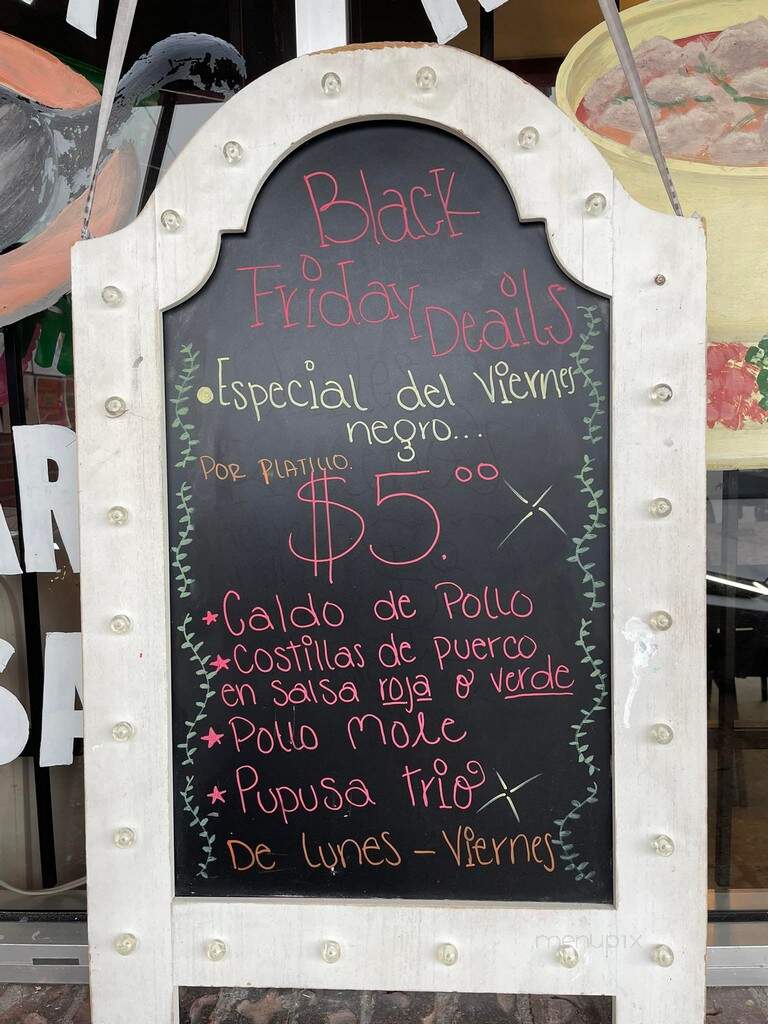 Black
Friday Deails
• Especial del Viernes
negro...
POR PLATILLO.
$5.00
* Caldo de Pollo
* Costillas de puerco
en salsa roja o verde
* Pollo Mole
* Pupusa trio
De Lunes - Viernes
menupix